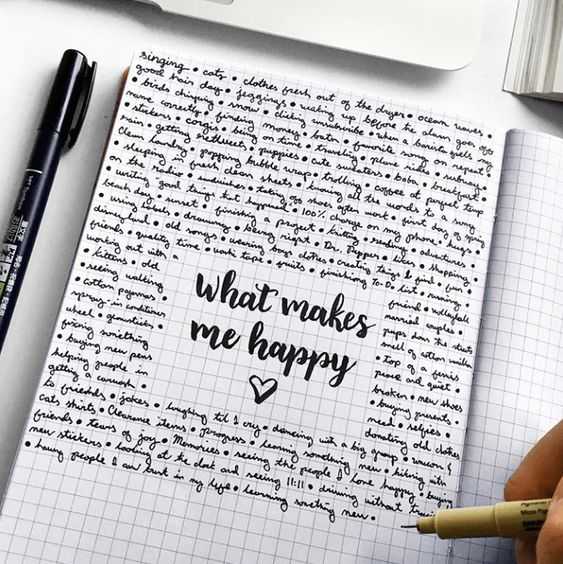 singing • cats • clothes fresh out of the dryer • ocean waves •
good hair day • jeggings • waking up before the alarm goes off
• birds chirping • snow • clicking unsubscribe • when a barista gets my
name correctly • finding money • baton • favorite song on repeat
• stickers • corgis • being on time • traveling • plane rides • subway
rain • getting retweets • puppies • cute sweaters • boba • breakfast •
clean laundry • popping bubble wrap • trolling • coffee at perfect temp
• sleeping in fresh clean sheets • knowing all the words to a song
on the radio • sunshine • taking off shoes after work • first day of spring
writing good things that happened • 100% charge on my phone • hugs •
beach day • sunset • finishing a project • knitting • reading • adventures
• using habits • drawing • being right • Dr. Pepper • lists • shopping
disneyland • old songs • wearing boys clothes • creating things • fun
friends • quality time • washi tape • fruits • finishing to Do list • running
working out with a friend • volleyball
• kittens • old married couples •
• seeing walking pups down the streets
cotton pajamas smell of cotton
• top of a ferris
wheel • peace and quiet
fixing something broken • new shoes
• buying new pens • buying presents •
helping people in need • selfies •
getting a carwash donating old clothes
to friends • jokes • laughing til I cry • dancing with a big group •
cats shirts • Clearance items • progress • learning something new • biking with
friends • tears of joy • Memories • seeing the people I love happy • buying
new stickers • looking at the clock and seeing 11:11 • driving without
• having people I can trust in my life • learning something new •
what makes
me happy